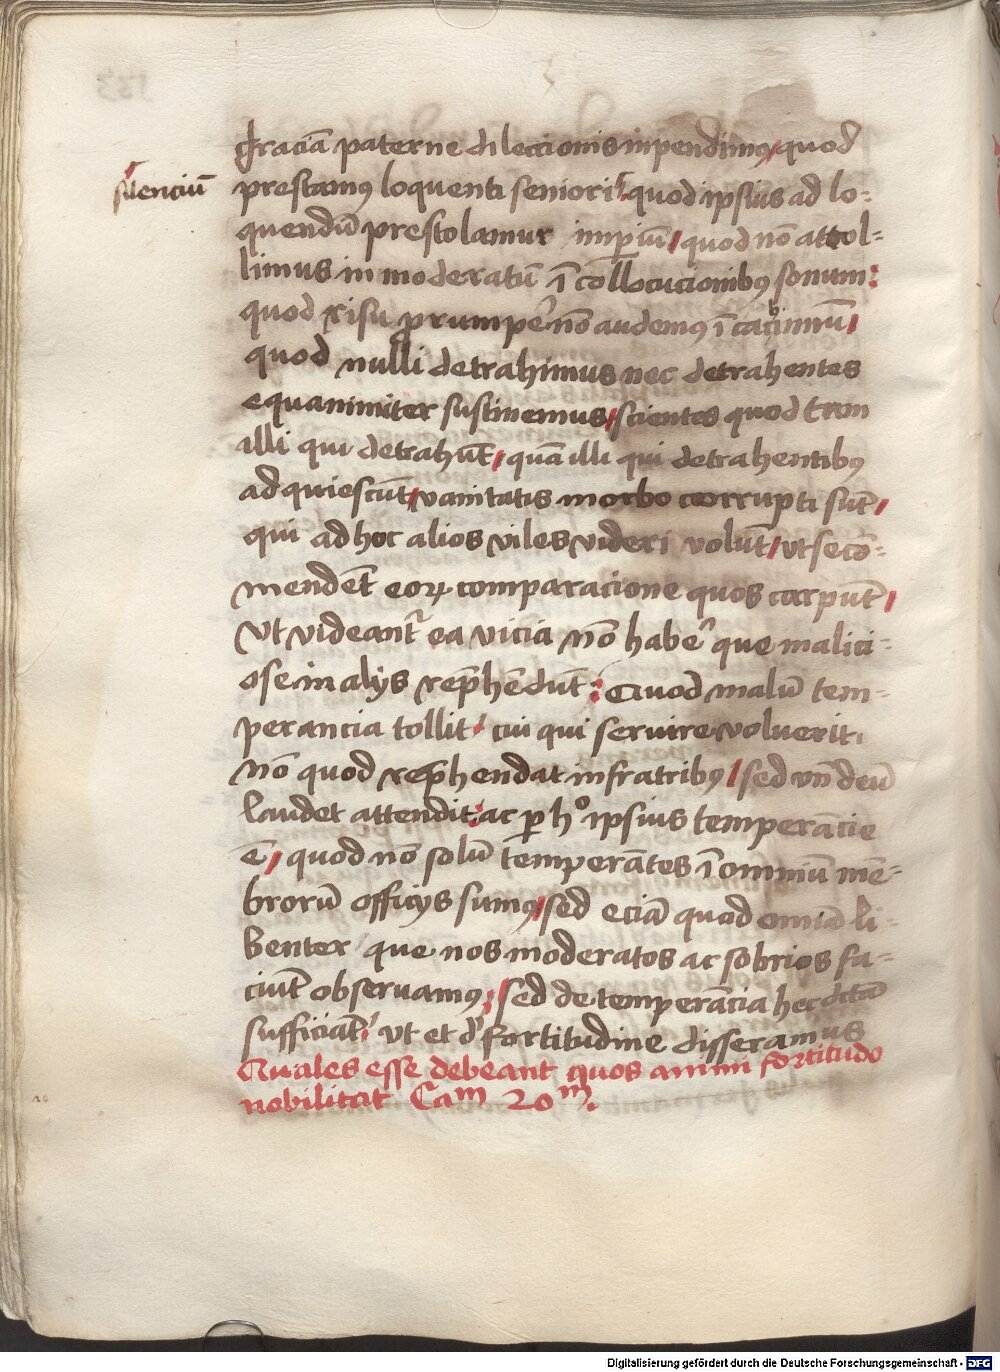 silenciū
graciā paterne dileccionis inpendimꝰ / quod
prestamꝰ loquenti seniori / quod ipsius ad lo-
quendū prestolamur imp̄iū / quod nō attol-
limus inmoderatū ī collocucionibꝫ sonum:
quod risu ꝓrumpe᷑ nō audemꝰ ī cachinnū /
quod nulli detrahimus nec detrahentes
equanimiter sustinemus / scientes quod tam
illi qui detrahūt / quā illi qui detrahentibꝰ
adquiescūt / vanitatis morbo corrupti sūt /
qui ad hoc alios viles videri volūt / ut se cō-
mendēt eoꝝ comparacione quos carpūt /
Ut videant᷑ ea vicia nō habe᷑ que malici-
ose in alijs rep̄hēdūt: Quod malū tem-
perancia tollit / cui qui servire voluerit
nō quod rep̄hendat in fratribꝰ / sed vn̄ deū
laudet attendit: ac ꝑ hͦ ipsius temperācie
ē / quod nō solū temperātes ī omniū mē-
brorū officijs sumꝰ / sed eciā quod omīa li-
benter que nos moderatos ac sobrios fa-
ciūt observamꝰ: sed de temperācia hec dcā
sufficiāt / ut et d᷑ fortitudine disseramus
Quales esse debeant quos animi fortitudo
nobilitat Caᵐ 20ᵐ.
Digitalisierung gefördert durch die Deutsche Forschungsgemeinschaft - DFG